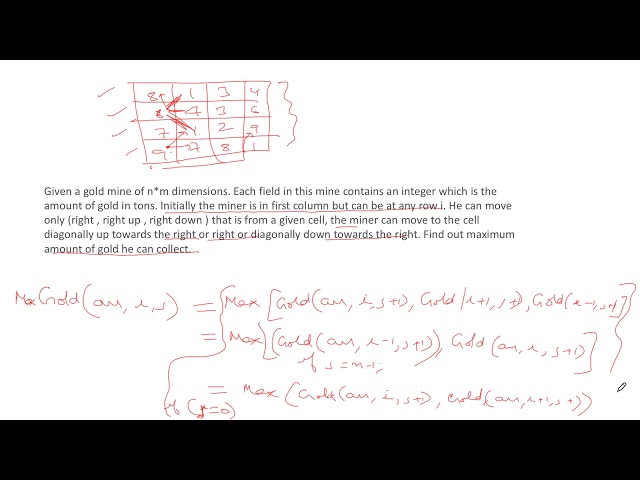 8 1 3 4
8 4 3 6
7 2 9
9 7 8 1
Given a gold mine of n*m dimensions. Each field in this mine contains an integer which is the
amount of gold in tons. Initially the miner is in first column but can be at any row i. He can move
only (right , right up , right down ) that is from a given cell, the miner can move to the cell
diagonally up towards the right or right or diagonally down towards the right. Find out maximum
amount of gold he can collect.
MaxGold(arr, i, j) = Max [Gold(arr, i, j+1), Gold(i+1, j+1), Gold(i-1, j+1)]
= Max [Gold(arr, i-1, j+1), Gold(arr, i, j+1)]
if
= Max (Gold(arr, i, j+1), Gold(arr, i+1, j+1))
if (=0)